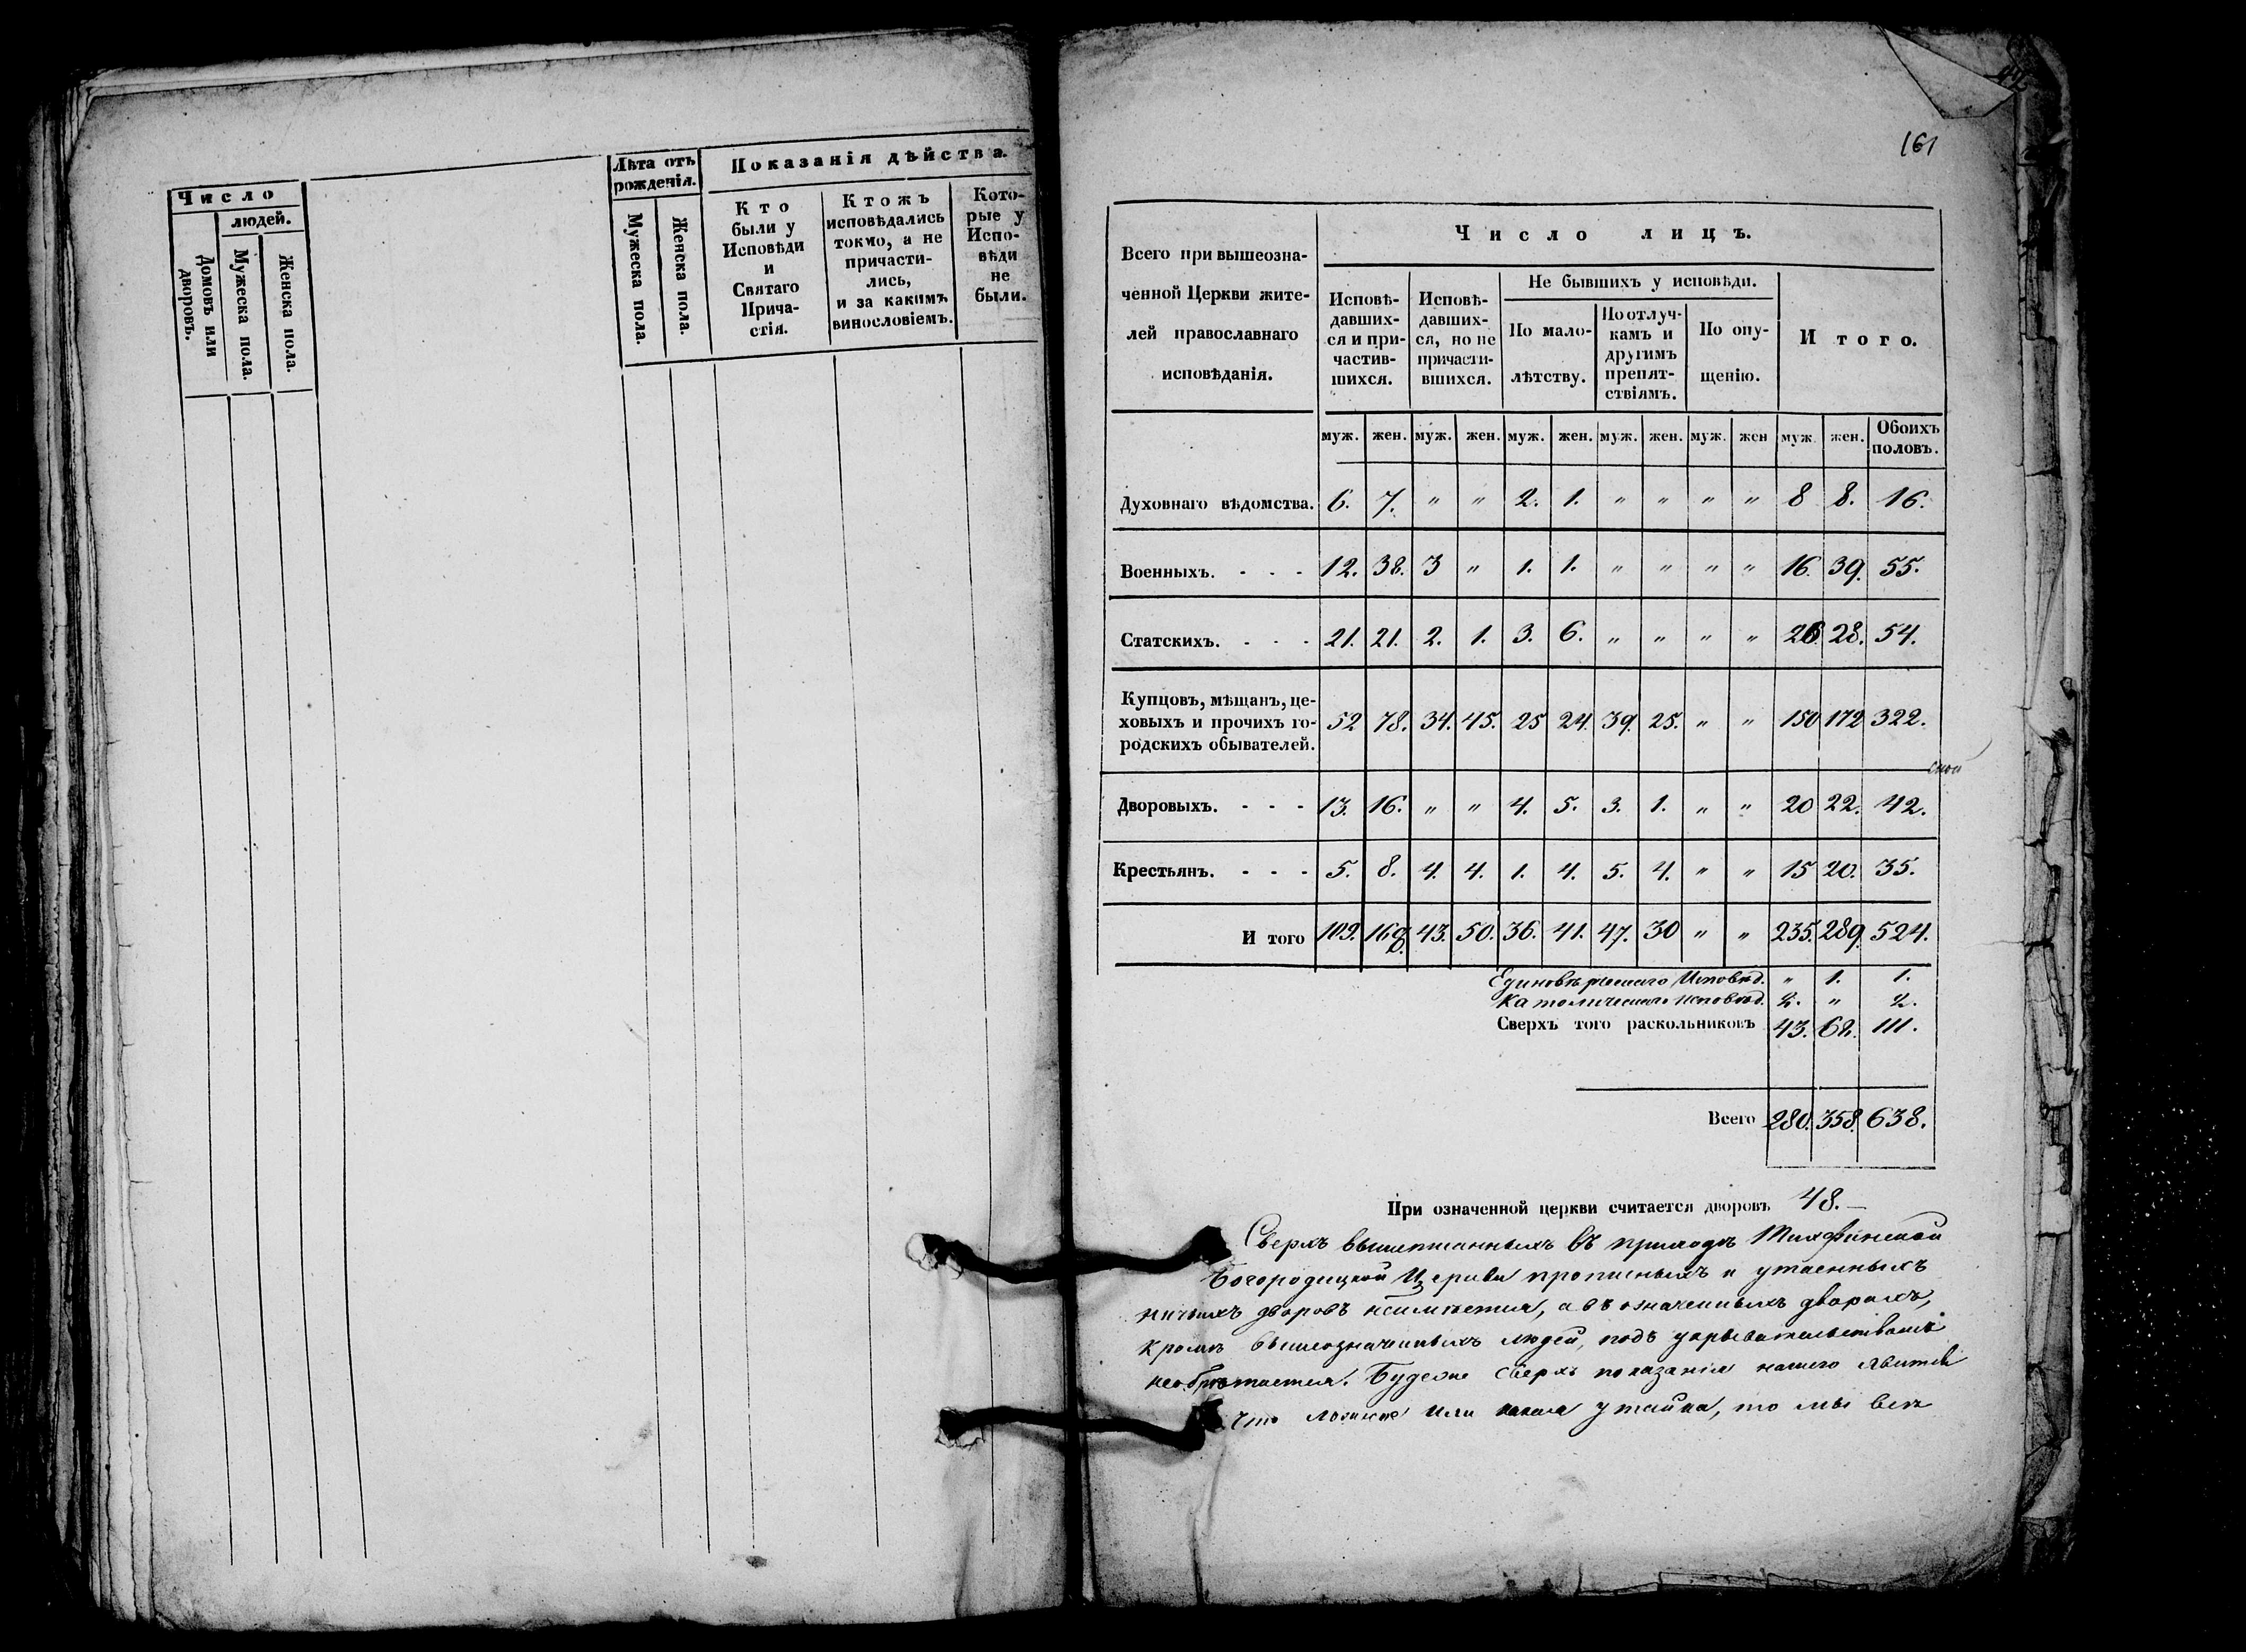 Число
людей.
Домовъ или дворовъ.
Мужеска пола.
Женска пола.
Лѣта отъ рожденія.
Мужеска пола.
Женска пола.
Показанія дѣйства.
Кто
были у
Исповѣди
и
Святаго
Прича-
стія.
Ктожъ
исповѣдались
токмо, а не
причасти-
лись,
и за какимъ
винословіемъ.
Кото-
рые у
Испо-
вѣди
не
были.
161
Всего при вышеозна-
ченной Церкви жите-
лей православнаго
исповѣданія.
Число лицъ.
Исповѣ-
давших-
ся и при-
частив-
шихся.
Исповѣ-
давших-
ся, но не
причасти-
вшихся.
Не бывшихъ у исповѣди.
По мало-
лѣтству.
По отлуч-
камъ и
другимъ
препят-
ствіямъ.
По опу-
щенію.
Итого.
муж. жен. муж. жен. муж. жен. муж. жен. муж. жен муж. жен. Обоихъ половъ.
Духовнаго вѣдомства. 6. 7. " " 2. 1. " " " " 8 8. 16.
Военныхъ. - - - 12. 38. 3 " 1. 1. " " " " 16. 39. 55.
Статскихъ. - - - 21. 21. 2. 1. 3. 6. " " " " 26 28. 54.
Купцовъ, мѣщанъ, це-
ховыхъ и прочихъ го-
родскихъ обывателей.
52 78. 34. 45. 25 24. 39. 25. " " 150 172 322.
Дворовыхъ. - - - 13. 16. " " 4. 5. 3. 1. " " 20 22. 42.
Крестьянъ. - - - 5. 8. 4. 4. 1. 4. 5. 4. " " 15 20. 35.
И того 109. 168. 43. 50. 36. 41. 47. 30 " " 235. 289. 524.
Единовѣрческаго Исповѣд. " 1. 1.
Католическаго исповѣд. 2. " 2.
Сверхъ того раскольниковъ 43. 68. 111.
Всего 280. 358. 638.
При означенной церкви считается дворовъ 48.—
Сверхъ вышеписанныхъ въ приходѣ Тихфинской
Богородицкой Церкви прописныхъ и утаенныхъ
ничьихъ дворовъ неимѣется, а въ означенныхъ дворахъ,
кромѣ вышеозначенныхъ людей, подъ укрывательствомъ
необрѣтается. Будеже сверхъ показанія нашего явится
что ложное или какая утайка, то мы всѣ